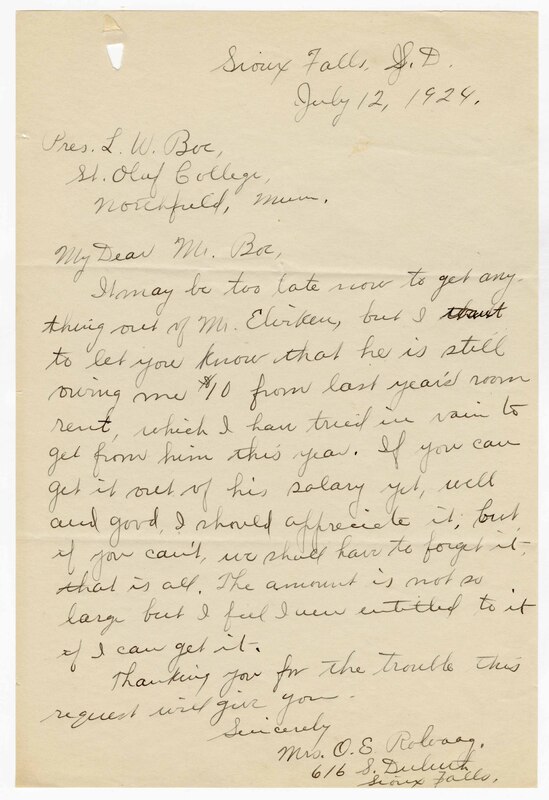 Sioux Falls, S.D.
July 12, 1924.
Pres. L. W. Boe,
St. Olaf College,
Northfield, Minn.
My Dear Mr. Boe,
It may be too late now to get any-
thing out of Mr. but I want
to let you know that he is still
owing me $10 from last year's room
rent, which I have tried in vain to
get from him this year. If you can
get it out of his salary yet, well
and good, I should appreciate it; but
if you can't, we shall have to forget it,
that is all. The amount is not so
large but I feel I am entitled to it
if I can get it.
Thanking you for the trouble this
request will give you.
Sincerely
Mrs. O. E. Rolvaag.
616 S. Duluth
Sioux Falls.